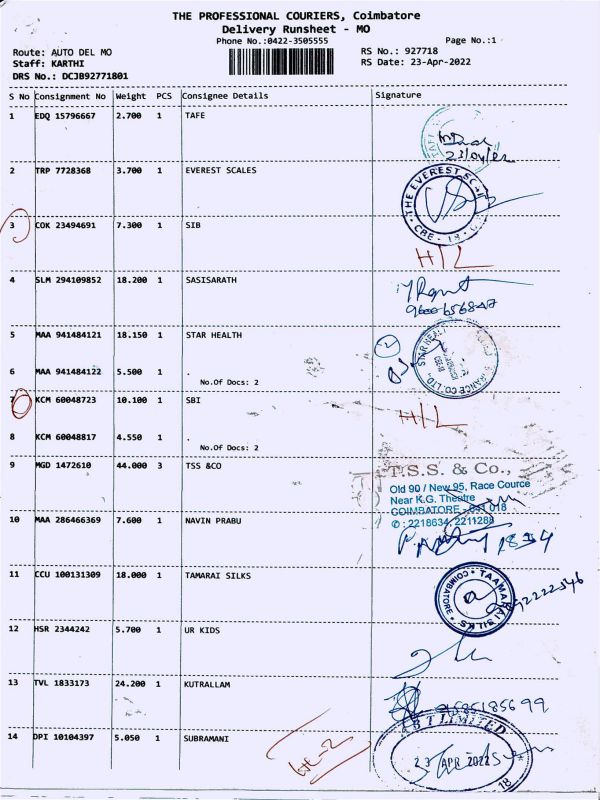 THE PROFESSIONAL COURIERS, Coimbatore
Delivery Runsheet - MO
Phone No.:0422-3505555 Page No.:1
Route: AUTO DEL MO RS No.: 927718
Staff: KARTHI RS Date: 23-Apr-2022
DRS No.: DCJB92771801
S No Consignment No Weight PCS Consignee Details Signature
1 EDQ 15796667 2.700 1 TAFE
TAFE
23/04/22
2 TRP 7728368 3.700 1 EVEREST SCALES
THE EVEREST SCALES
CBE - 18
3 COK 23494691 7.300 1 SIB
H/L
4 SLM 294109852 18.200 1 SASISARATH
5 MAA 941484121 18.150 1 STAR HEALTH
2
STAR HEALTH
6 MAA 941484122 5.500 1 .
No.Of Docs: 2
7 KCM 60048723 10.100 1 SBI
H/L
8 KCM 60048817 4.550 1 .
No.Of Docs: 2
9 MGD 1472610 44.000 3 TSS &CO
T.S.S. & Co.,
Old 90 / New 95, Race Cource
Near K.G. Theatre
COIMBATORE - 641 018
✆ : 2218634, 2211288
10 MAA 286466369 7.600 1 NAVIN PRABU
11 CCU 100131309 18.000 1 TAMARAI SILKS
TAAMARAI SILKS
COIMBATORE
12 HSR 2344242 5.700 1 UR KIDS
13 TVL 1833173 24.200 1 KUTRALLAM
9585185699
14 DPI 10104397 5.050 1 SUBRAMANI
BT LIMITED
23 APR 2022
18